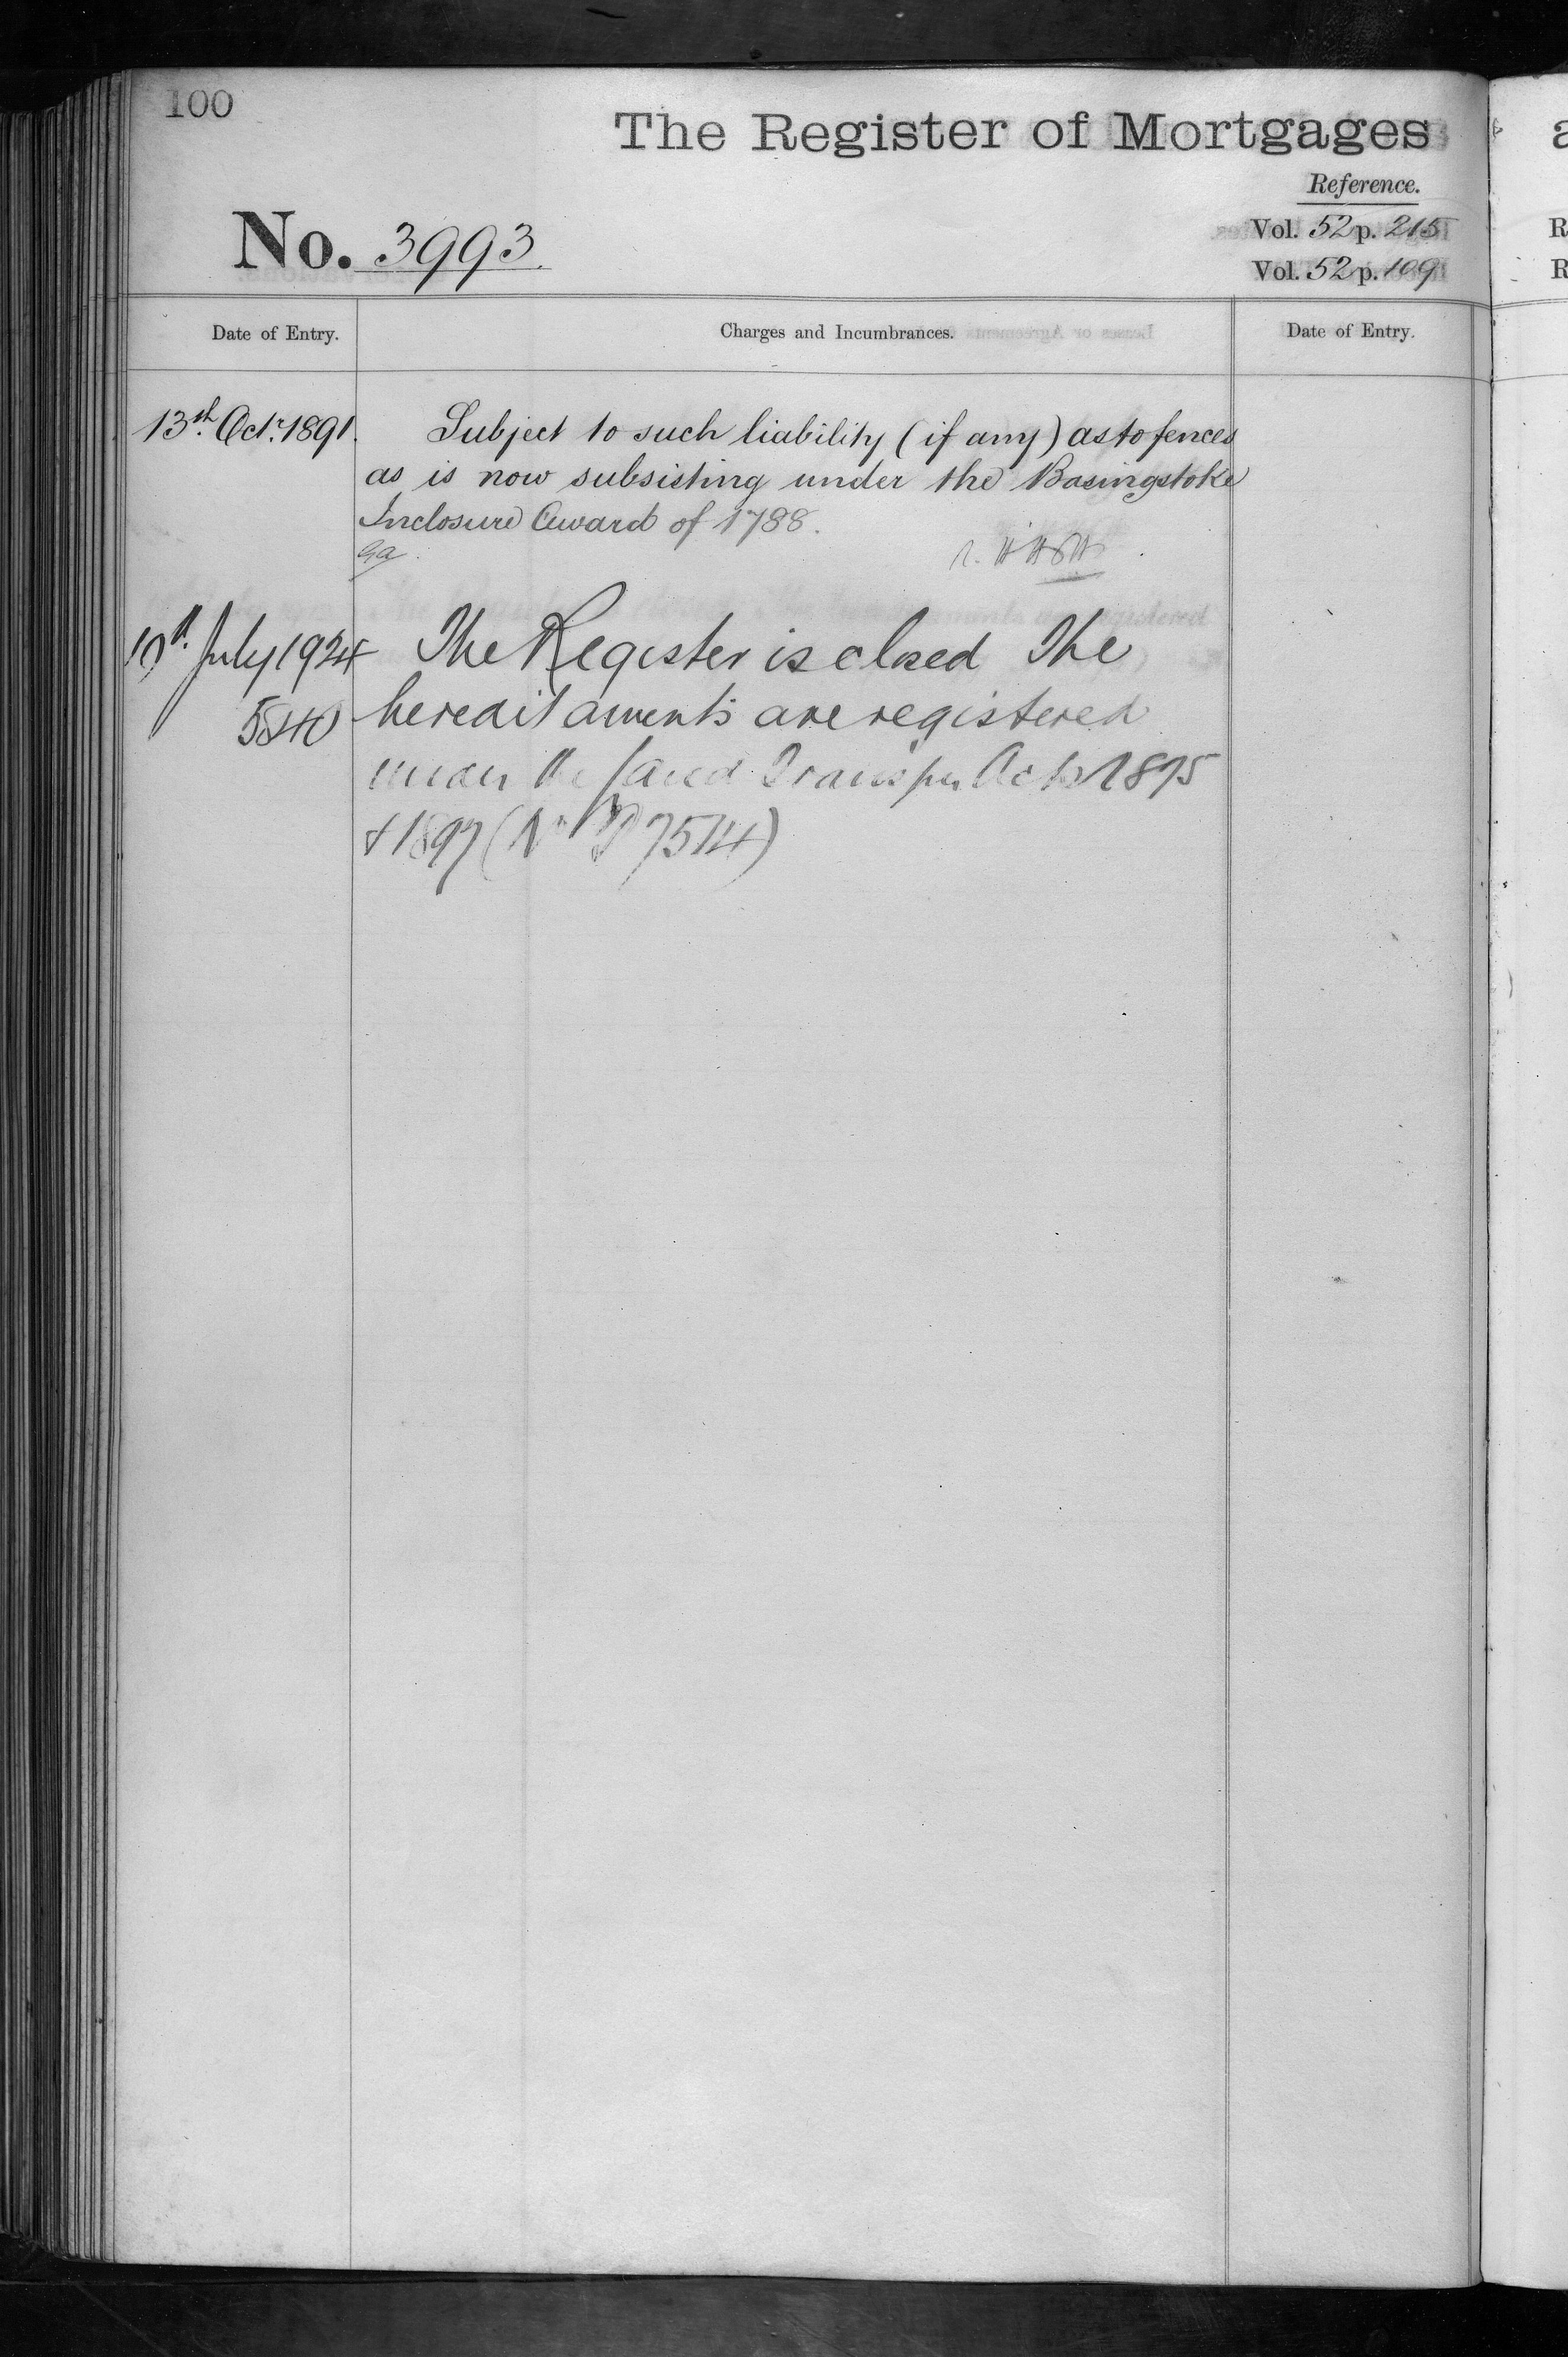 100
The Register of Mortgages
Reference.
No. 3993.
Vol. 52 p. 215
Vol. 52 p. 109
Date of Entry.
Charges and Incumbrances.
Date of Entry.
13th. Oct. 1891.
Subject to such liability (if any) as to fences
as is now subsisting under the Basingstoke
Inclosure Award of 1788.
10th. July 1924
The Register is closed The
5840
hereditaments are registered
under the Land Transfer Acts 1875
& 1897 (No P 7514)